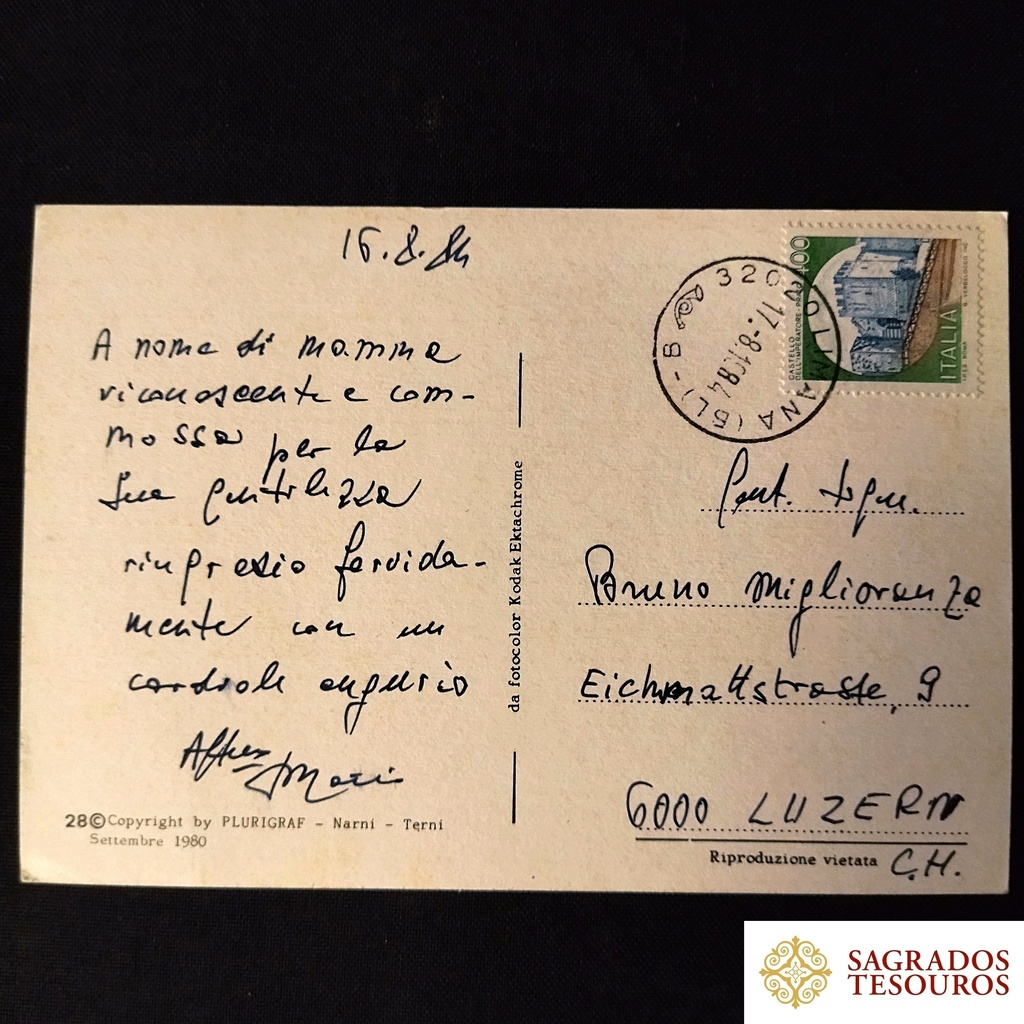 16.8.84
A nome di mamma
riconoscente e com-
mossa per la
Sua gentilezza
ringrazio fervida-
mente con un
cordiale augurio
28 © Copyright by PLURIGRAF - Narni - Terni
Settembre 1980
da fotocolor Kodak Ektachrome
320
17.-8.1984
MANA (BL) - B
400
CASTELLO
DELL'IMPERATORE - PRATO
ITALIA
Gent. Sign.
Bruno Miglioranza
Eichmattstrasse, 9
6000 LUZERN
Riproduzione vietata C.H.
SAGRADOS
TESOUROS